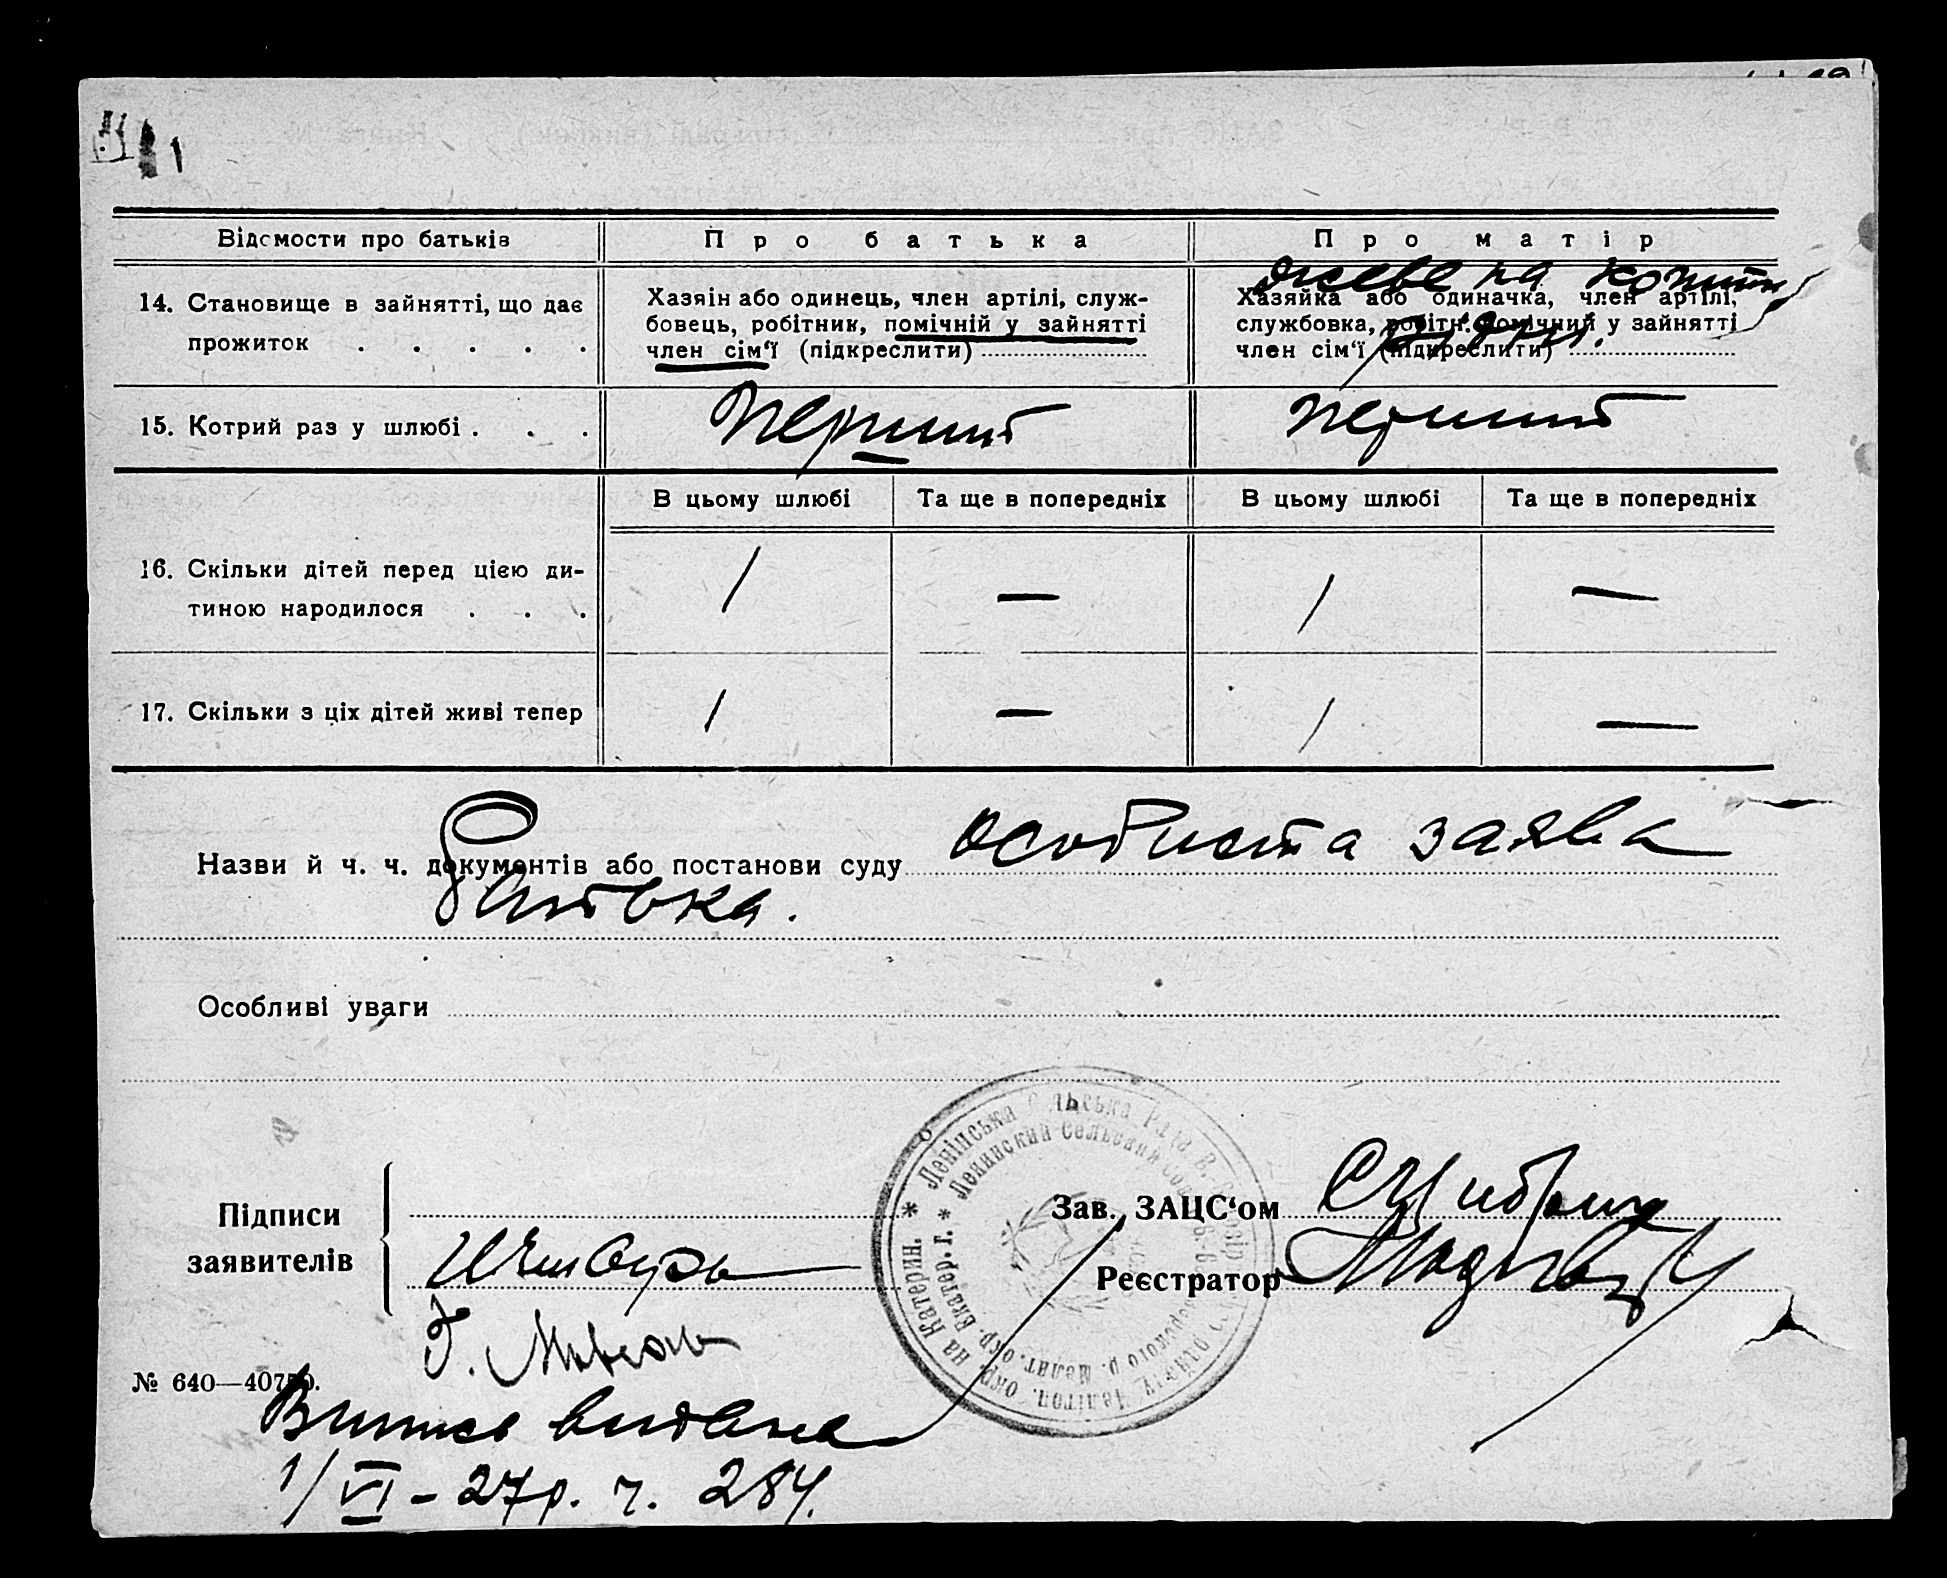 Відомости про батьків
Про батька
Про матір
14. Становище в зайнятті, що дає
прожиток . . . . .
Хазяін або одинець, член артілі, служ-
бовець, робітник, помічній у зайнятті
член сім‘ї (підкреслити)
живе на кошти
Хазяйка або одиначка, член артілі,
службовка, робітн. помічний у зайнятті
член сім‘ї (підкреслити)
15. Котрий раз у шлюбі . . .
перший
перший
В цьому шлюбі
Та ще в попередніх
В цьому шлюбі
Та ще в попередніх
16. Скільки дітей перед цією ди-
тиною народилося . . .
1 — 1 —
17. Скільки з ціх дітей живі тепер
1 — 1 —
Назви й ч. ч. документів або постанови суду особиста заява
батька.
Особливі уваги
Підписи
заявителів
Зав. ЗАЦС‘ом
Реєстратор
* Ленінська Сільська Рада
на Катерин.
* Ленинский Сельский Сов.
Мелит. окр. Екатер. г.
№ 640—40750.
Випись видана
1/VI – 27р. ч. 284.